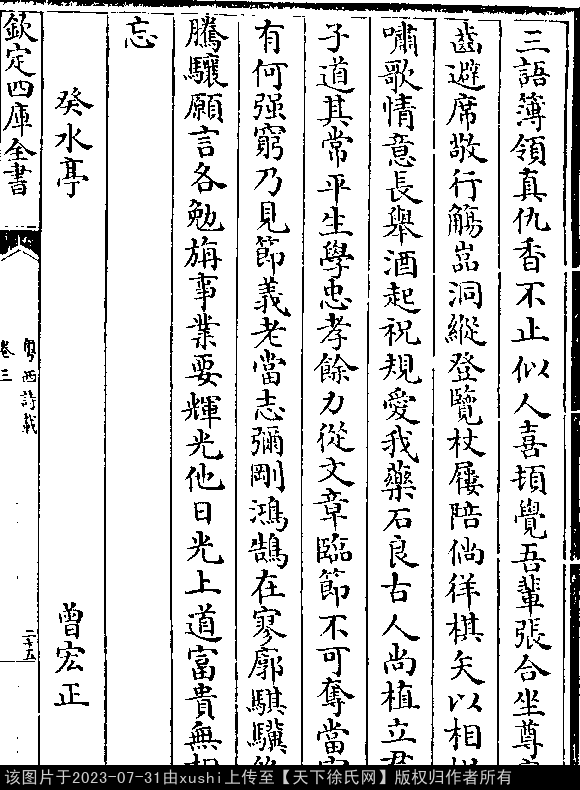 三語簿領真仇香不止似人喜頓覺吾輩張合坐尊
齒避席敬行觴嵓洞縱登覽杖屨陪倘徉棋矢以相
嘯歌情意長舉酒起祝規愛我藥石良古人尚植立君
子道其常平生學忠孝餘力從文章臨節不可奪當
有何强窮乃見節義老當志彌剛鴻鵠在寥廓騏驥
騰驤願言各勉旃事業要輝光他日光上道富貴無相
忘
癸水亭 曾宏正
欽定四庫全書
粵西詩載
卷三
二十五
该图片于2023-07-31由xushi上传至【天下徐氏网】版权归作者所有